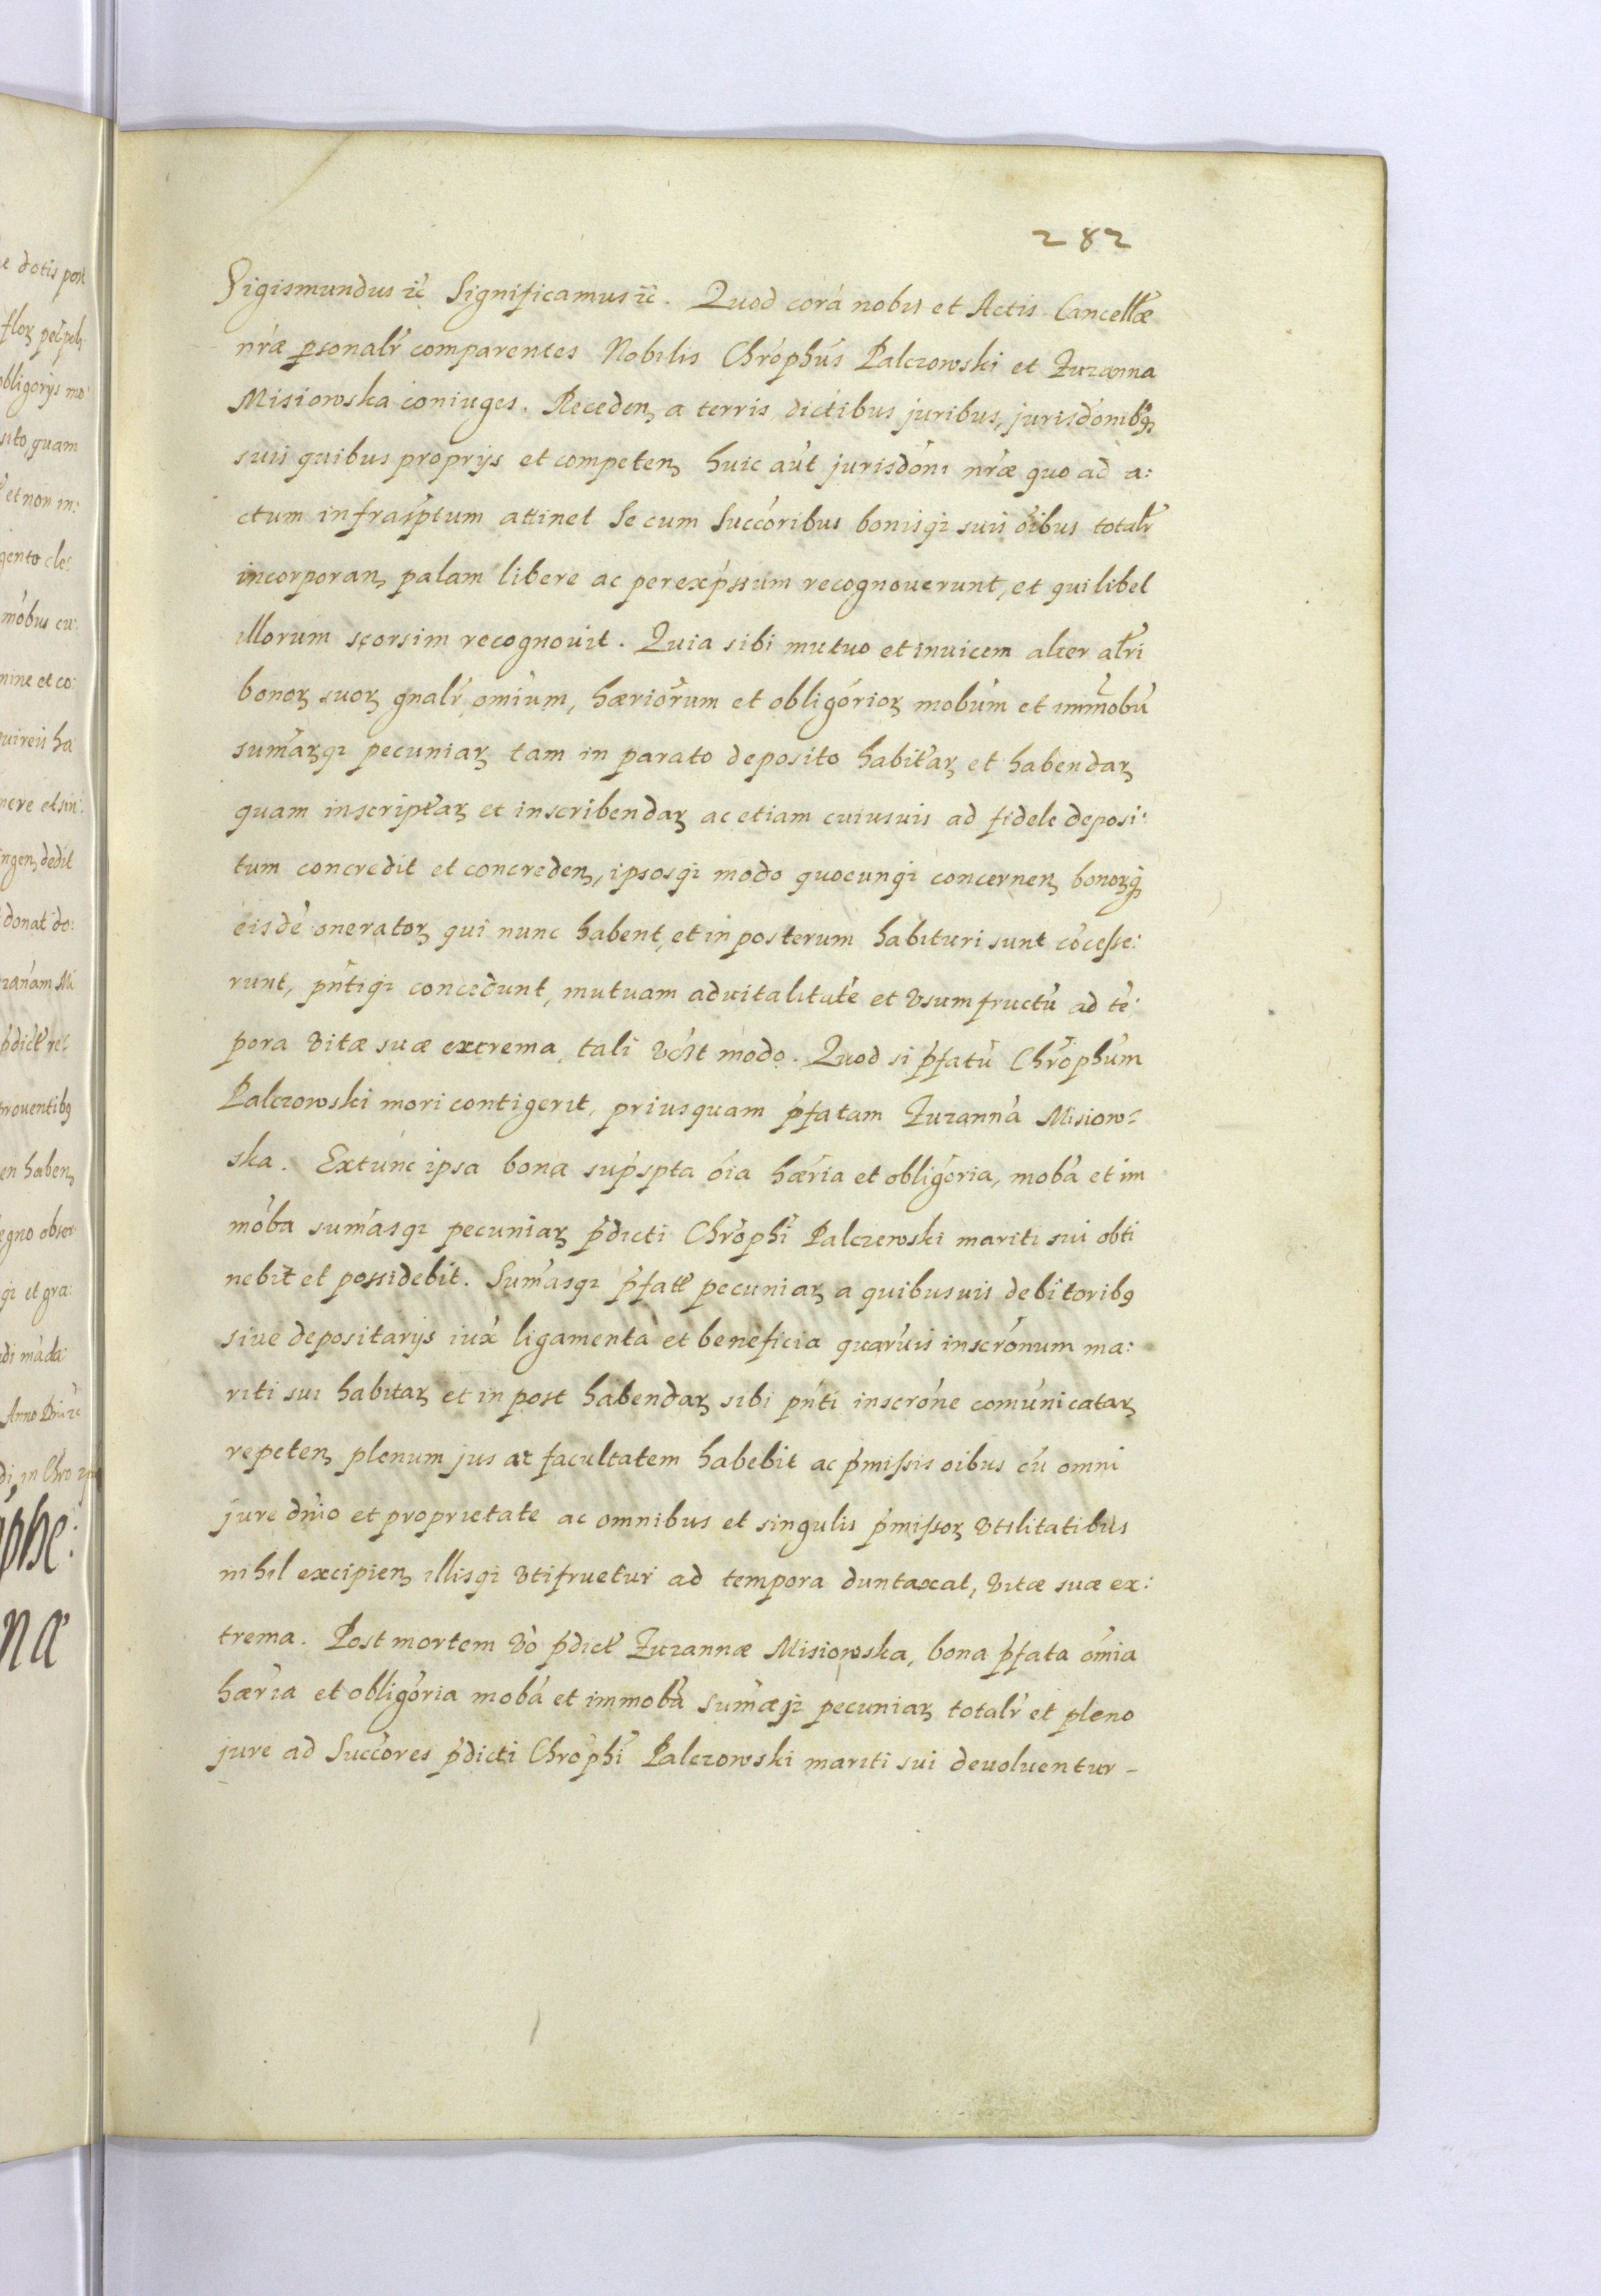 282
Sigismundus ꝛc̃ Significamus ꝛc̃. Quod corã nobis et Actis Cancellæ
nr̃æ ꝑsonalr̃ comparentes Nobilis Chrõphũs Palczowski et Zuzanna
Misiowska coniuges. Recedenꝫ a terris, dictibus juribus, jurisdõnibꝰ
suis quibus proprijs et competenꝫ huic aũt jurisdõni nr̃æ quo ad a:
ctum infrasp̃tum attinet Se cum Succõribus bonisqꝫ suis õibus totalr̃
incorporanꝫ palam libere ac per exp̃ssum recognouerunt, et quilibet
illorum seorsim recognouit. Quia sibi mutuo et inuicem alter alr̃i
bonoꝝ suoꝝ gnalr̃ omĩum, hæriõrum et obligõrioꝝ mobũm et immobũ
sum̃aꝝqꝫ pecuniaꝝ tam in parato deposito habit̃aꝝ et habendaꝝ
quam inscript̃aꝝ et inscribendaꝝ ac etiam cuiusuis ad fidele deposi:
tum concredit et concredenꝫ, ipsosqꝫ modo quocunqꝫ concernenꝫ bonoꝝqꝫ
eisdẽ oneratoꝝ qui nunc habent, et in posterum habituri sunt cõcesse:
runt, pñtiqꝫ concedunt, mutuam aduitalitatẽ et vsumfructũ ad tẽ:
pora vitæ suæ extrema, tali vc̃st modo. Quod si p̃fatũ Chrõphũm
Palczowski mori contigerit, priusquam p̃fatam Zuzannã Misiow:
ska. Extũnc ipsa bona sup̃spta õia hæria et obligõria, mobã et im
mõba sum̃asqꝫ pecuniaꝝ p̃dicti Chrõphĩ Palczewski mariti sui obti
nebit et possidebit. Sum̃asqꝫ p̃fatt̃ pecuniaꝝ a quibusuis debitoribꝰ
siue depositarijs iux̃ ligamenta et beneficia quarũis inscrõnum ma:
riti sui habitaꝝ et in post habendaꝝ sibi pñti inscrõne comũnicataꝝ
repetenꝫ plenum jus ac facultatem habebit ac p̃missis oibus cũ omni
jure dñio et proprietate ac omnibus et singulis p̃missoꝝ vtilitatibus
nihil excipienꝫ illisqꝫ vtifruetur ad tempora duntaxat, vitæ suæ ex:
trema. Post mortem võ p̃dict̃ Zuzannæ Misiowska, bona p̃fata om̃ia
hærĩa et obligõria mobã et immobã sum̃æqꝫ pecuniaꝝ totalr̃ et pleno
jure ad Succõres p̃dicti Chrõphĩ Palczowski mariti sui deuoluentur -